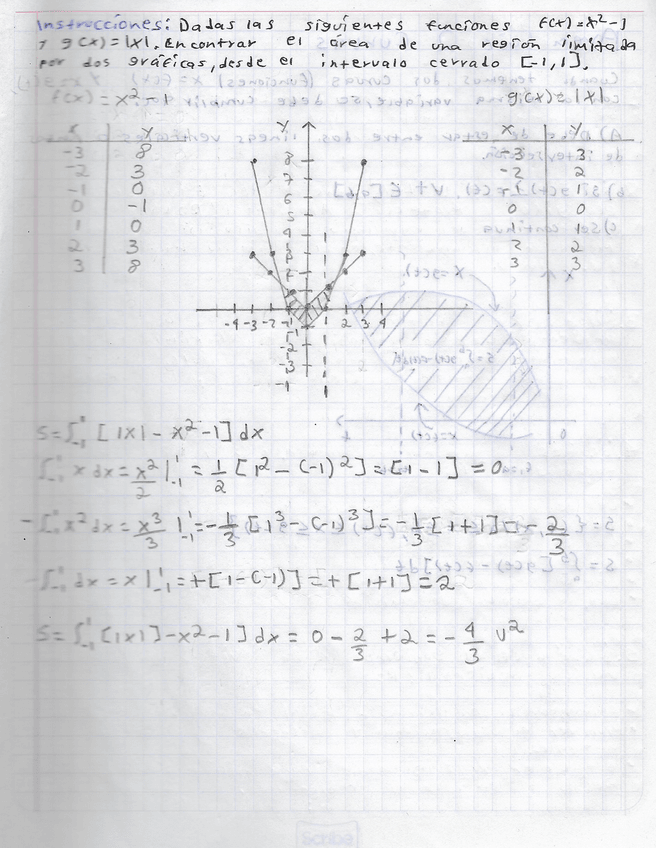 Instrucciones: Dadas las siguientes funciones f(x)=x²-1
y g(x)=|x|. Encontrar el área de una región limitada
por dos gráficas, desde el intervalo cerrado [-1,1].
f(x)=x²-1
g(x)=|x|
x y
-3 8
-2 3
-1 0
0 -1
1 0
2 3
3 8
x y
-3 3
-2 2
-1 1
0 0
1 1
2 2
3 3
y
8
7
6
5
4
3
2
-4 -3 -2 -1 1 2 3 4
-1
-2
-3
-1
S=∫₋₁¹ [|x|-x²-1]dx
∫₋₁¹ x dx = x²/2 |₋₁¹ = 1/2 [1²-(-1)²]=[1-1]=0
-∫₋₁¹ x² dx = x³/3 |₋₁¹ = -1/3 [1³-(-1)³]= -1/3 [1+1]= -2/3
-∫₋₁¹ dx = x|₋₁¹ = +[1-(-1)]=+[1+1]=2
S=∫₋₁¹ [|x|]-x²-1]dx = 0 - 2/3 + 2 = -4/3 u²
Scribe